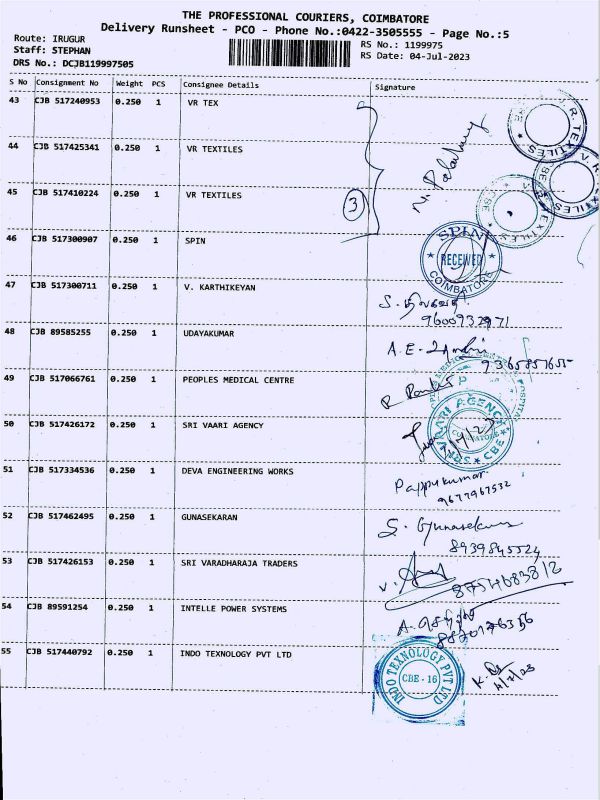 THE PROFESSIONAL COURIERS, COIMBATORE
Delivery Runsheet - PCO - Phone No.:0422-3505555 - Page No.:5
Route: IRUGUR
RS No.: 1199975
Staff: STEPHAN
RS Date: 04-Jul-2023
DRS No.: DCJB119997505
S No Consignment No Weight PCS Consignee Details Signature
43 CJB 517240953 0.250 1 VR TEX
44 CJB 517425341 0.250 1 VR TEXTILES
45 CJB 517410224 0.250 1 VR TEXTILES
3
V.R. TEXTILES
46 CJB 517300907 0.250 1 SPIN
SPIN
RECEIVED
COIMBATORE
47 CJB 517300711 0.250 1 V. KARTHIKEYAN
48 CJB 89585255 0.250 1 UDAYAKUMAR
A.E.
49 CJB 517066761 0.250 1 PEOPLES MEDICAL CENTRE
50 CJB 517426172 0.250 1 SRI VAARI AGENCY
SRI VAARI AGENCY
COIMBATORE
CBE
51 CJB 517334536 0.250 1 DEVA ENGINEERING WORKS
Pappukumar
9677967532
52 CJB 517462495 0.250 1 GUNASEKARAN
S. Gunasekaran
8939845524
53 CJB 517426153 0.250 1 SRI VARADHARAJA TRADERS
54 CJB 89591254 0.250 1 INTELLE POWER SYSTEMS
8870176356
55 CJB 517440792 0.250 1 INDO TEXNOLOGY PVT LTD
INDO TEXNOLOGY PVT LTD
CBE - 16
4/7/23